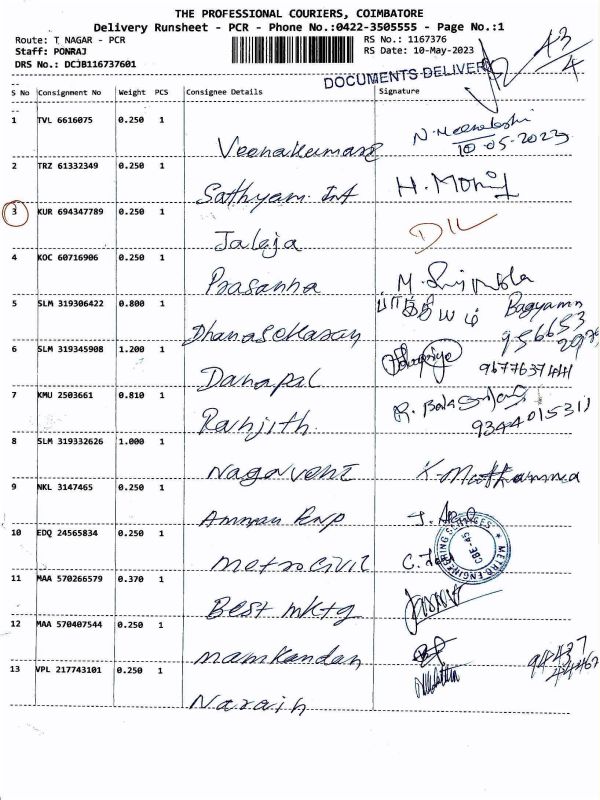 THE PROFESSIONAL COURIERS, COIMBATORE
Delivery Runsheet - PCR - Phone No.:0422-3505555 - Page No.:1
Route: T NAGAR - PCR
RS No.: 1167376
Staff: PONRAJ
RS Date: 10-May-2023
DRS No.: DCJB116737601
DOCUMENTS DELIVERY
43/4
S No Consignment No Weight PCS Consignee Details Signature
1 TVL 6616075 0.250 1
Veenakumari N. Meenakshi
10-05-2023
2 TRZ 61332349 0.250 1
Sathyam Int H. Mohij
3 KUR 694347789 0.250 1
Jaleja DIL
4 KOC 60716906 0.250 1
Prasanna M.
5 SLM 319306422 0.800 1
Dhanasekaran Bagyamn
956653
6 SLM 319345908 1.200 1
Danapal 9677637441
7 KMU 2503661 0.810 1
Ranjith R. Bala
9344015311
8 SLM 319332626 1.000 1
Nagaveni K. Muthammea
9 NKL 3147465 0.250 1
Amman Enp J.
10 EDQ 24565834 0.250 1
Metro Civil C.
METRO ENGINEERING SERVICES
CBE-45
11 MAA 570266579 0.370 1
Best Mktg
12 MAA 570407544 0.250 1
Manikandan
94437
13 VPL 217743101 0.250 1
Narain